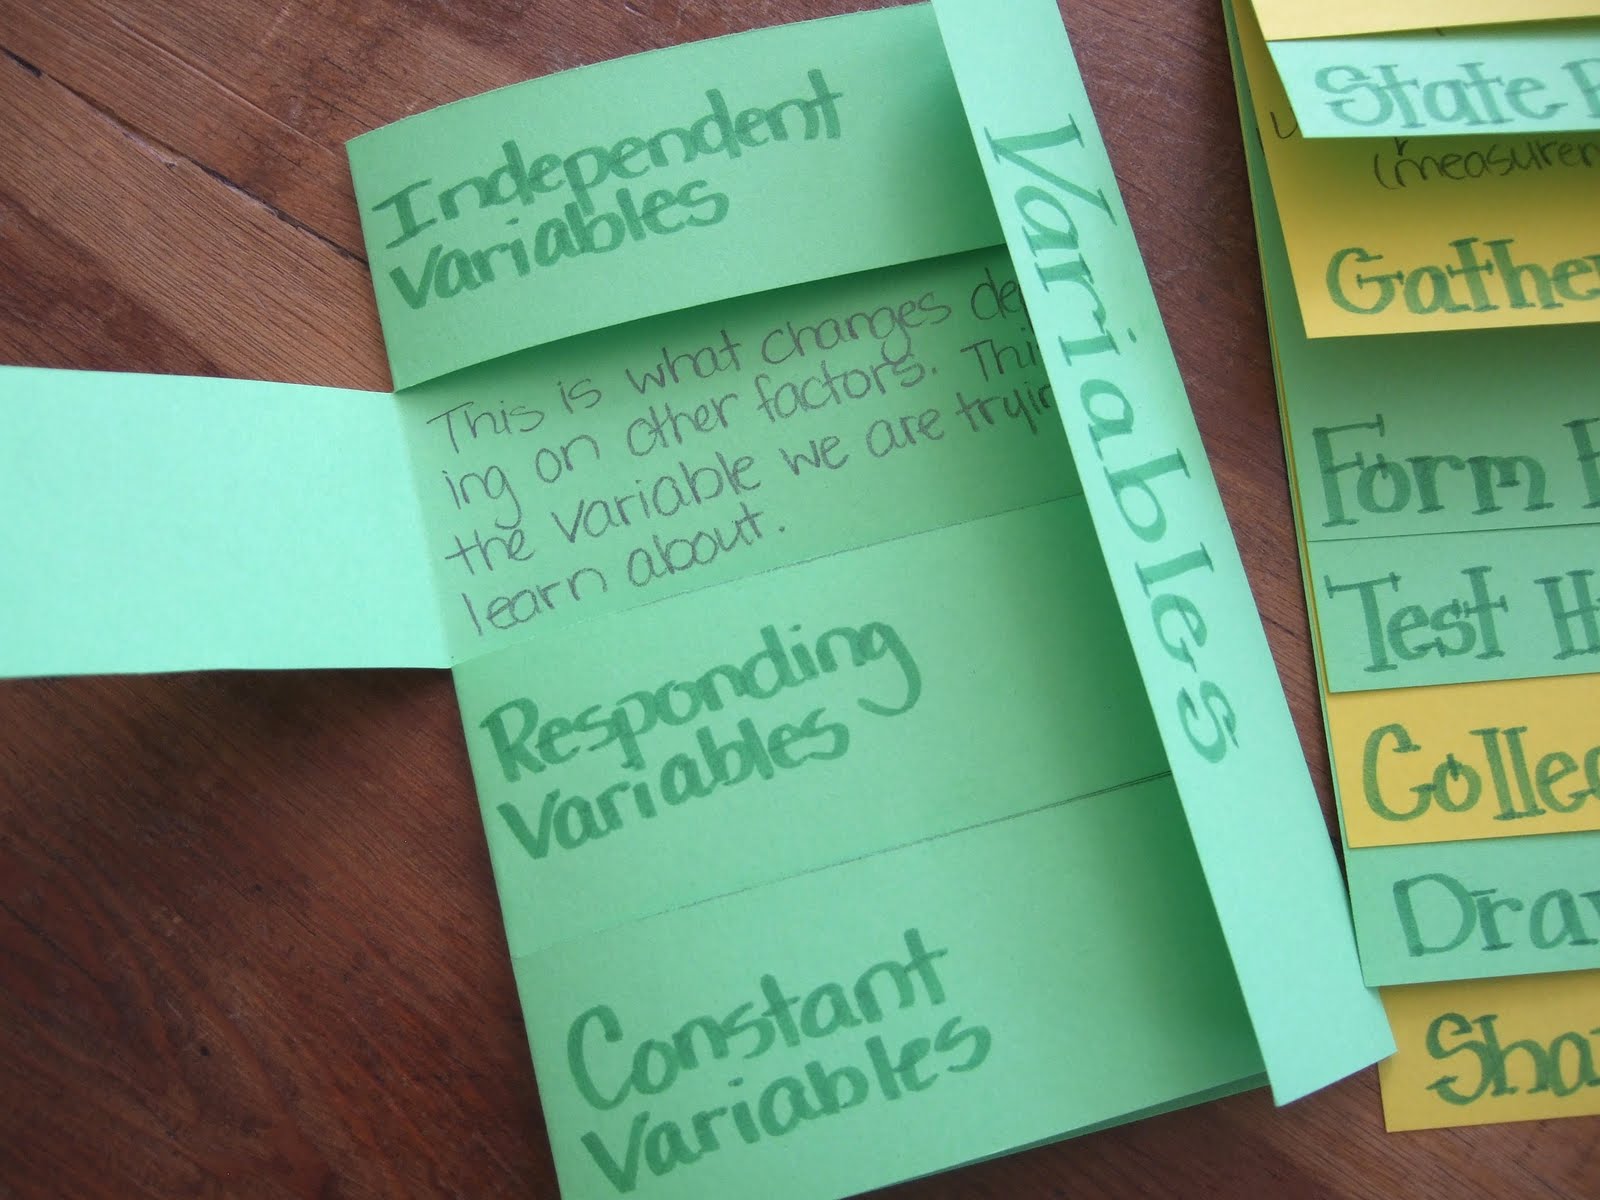 Independent
Variables
This is what changes
ing on other factors.
the variable we are
learn about.
Responding
Variables
Constant
Variables
Variables
State
(measuremen
Gather
Form
Test
Collec
Dra
Sha